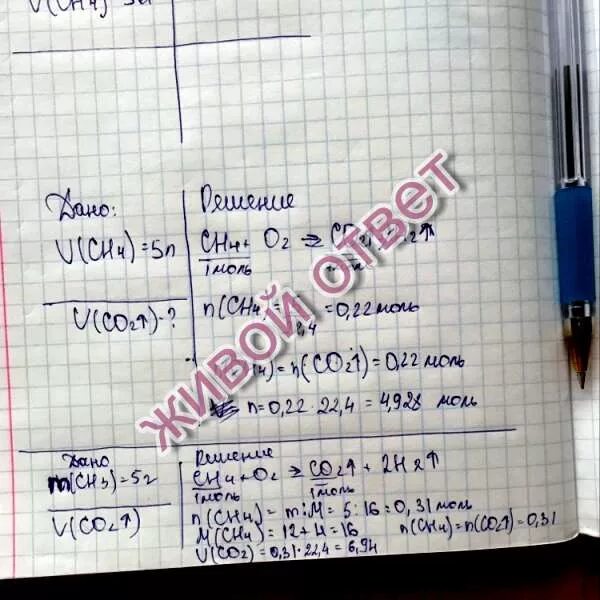 V(CH4) 5л
Дано:
V(CH4)=5л
V(CO2↑)-?
Решение
CH4+ O2 ⇒ 2↑
1моль
n(CH4)= =0,22моль
= n(CO2↑)=0,22 моль
n=0,22·22,4=4,928 моль
ЖИВОЙ ОТВЕТ
Дано
m(CH3)=5г
V(CO2↑)
Решение
CH4+O2 ⇒ CO2↑ + 2H2↑
1моль 1моль
n(CH4)= m:M= 5:16=0,31моль
M(CH4)=12+4=16 n(CH4)=n(CO2↑)=0,31
V(CO2)=0,31·22,4=6,94